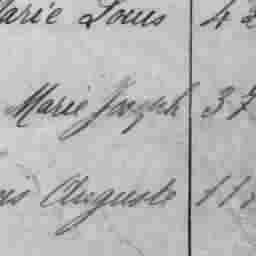 Marie Louis 42
Marie Joseph 37
Auguste 11